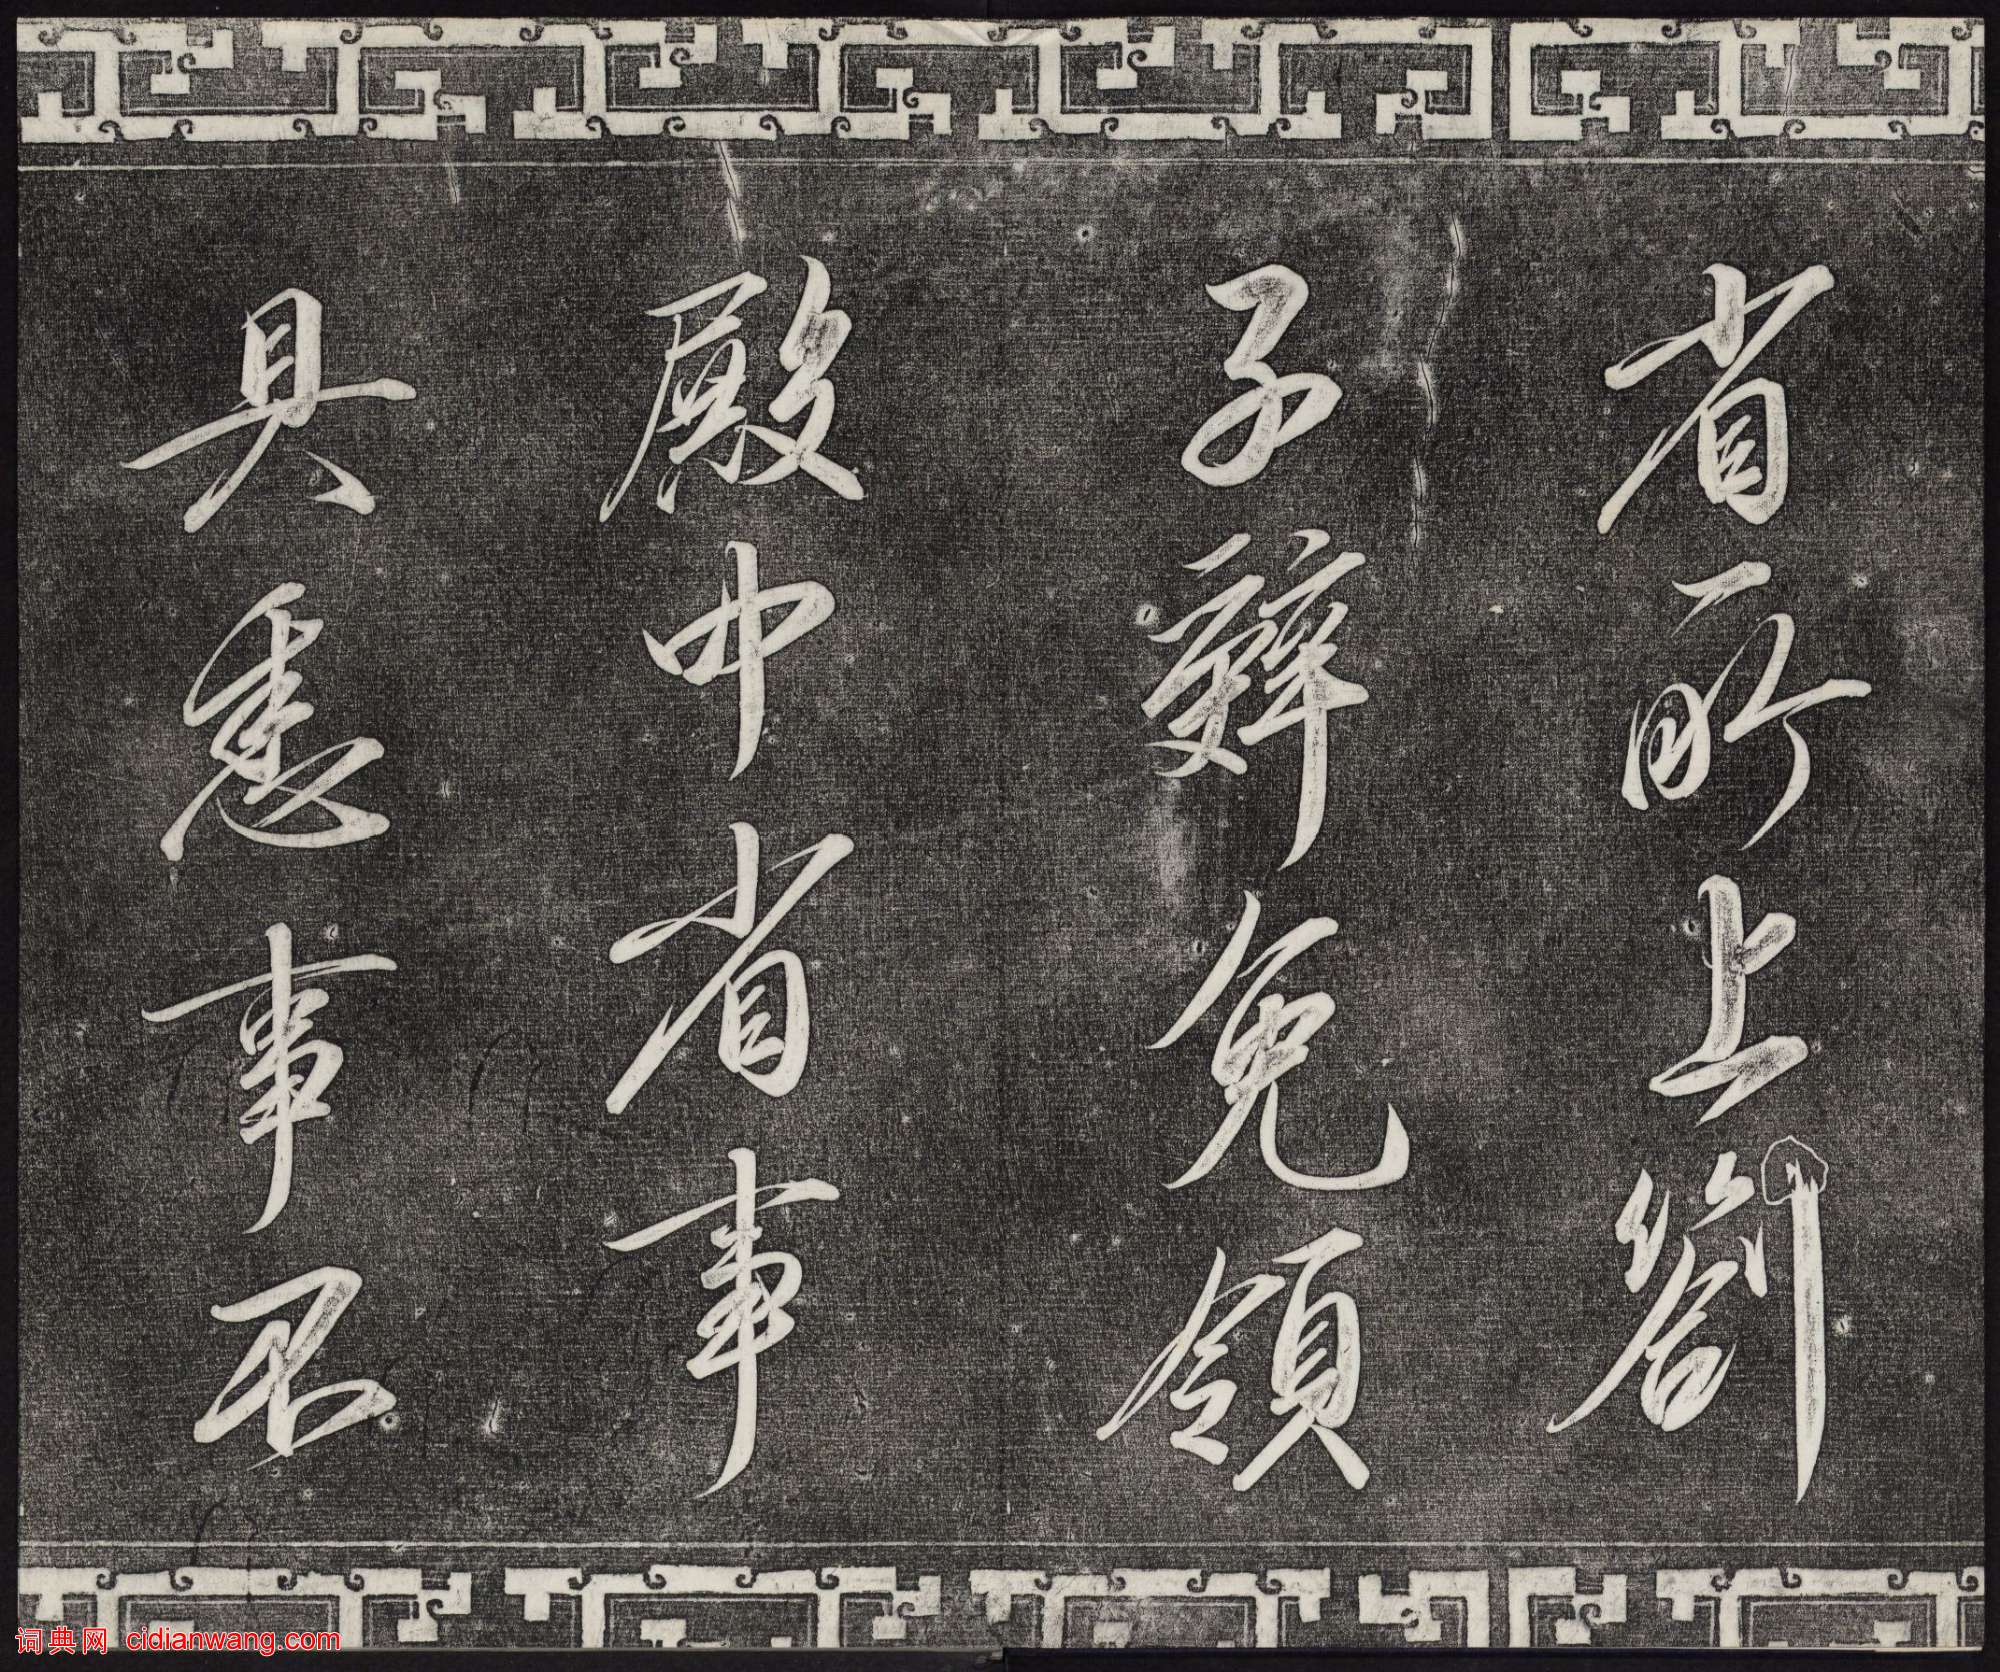 省所上劄
子辭免領
殿中省事
具悉事不
词典网 cidianwang.com